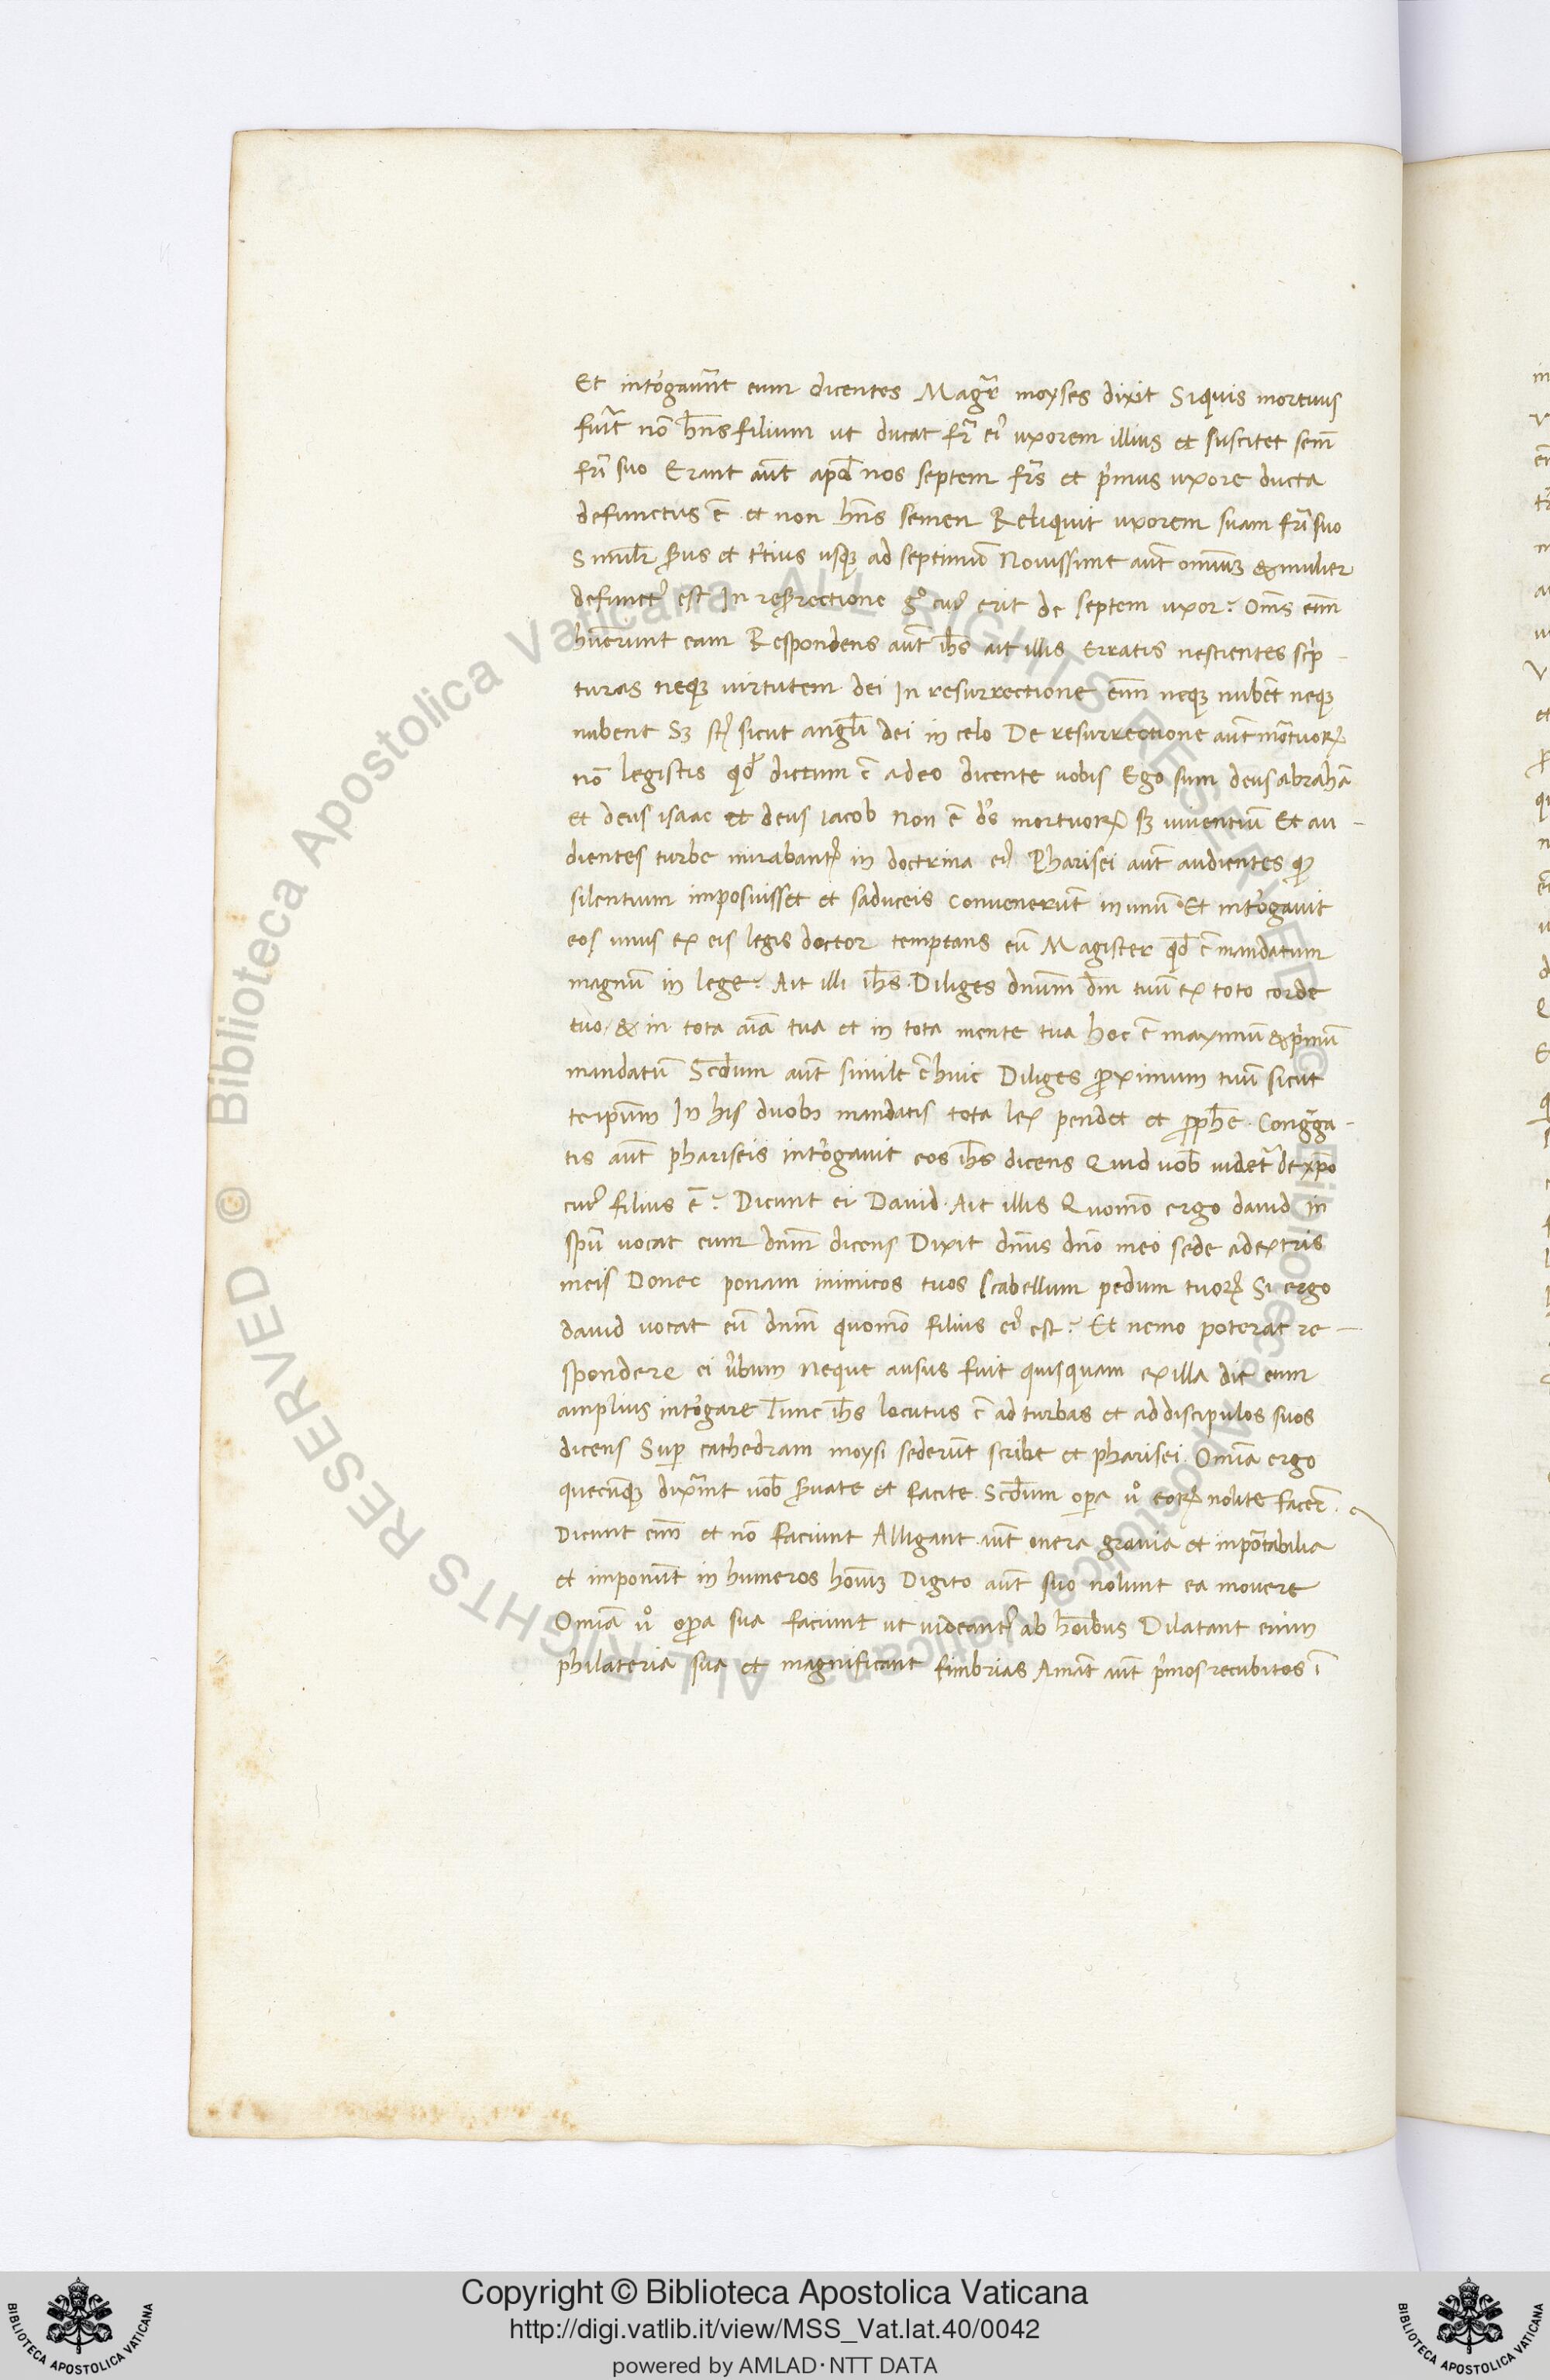 Et int'ogauerūt eum dicentes Magr̄ moyses dixit Siquis mortuus
fuīt nō hn̄s filium ut ducat fr̄ ei' uxorem illius et suscitet sem̄
fr̄i suo Erant aūt apd̄ nos septem fr̄s et p'mus uxore ducta
defunctus ē et non hn̄s semen Reliquit uxorem suam fr̄i suo
Simil'r sc̄dus et t'tius usq; ad septimū Nouissime aūt omniū & mulier
defuncta est In resurrectione g° cui' erit de septem uxor? Om̄s eīm
hūerunt eam Respondens aūt ih̄s ait illis Erratis nescientes sc'p-
turas neq; uirtutem dei In resurrectione eīm neq; nubēt neq;
nubent Sꝫ st̄ sicut angl̄i dei in celo De resurrectione aūt mōrtuorꝝ
nō legistis qd̄ dictum ē a deo dicente uobis Ego sum deus abrahā
et deus isaac et deus Iacob Non ē d's mortuorꝝ sꝫ uiuentiū Et au-
dientes turbe mirabant' in doctrina ei' Pharisei aūt audientes ꝙ
silentium imposuisset et saduceis Conuenerūt in unū Et int'ogauit
eos unus ex eis legis doctor temptans eū Magister qd̄ ē mandatum
magnū in lege? Ait illi ih̄s. Diliges dnūm dm̄ tuū ex toto corde
tuo & in tota aīa tua et in tota mente tua hoc ē maximū & p'mū
mandatū Scd̄um aūt simile ē huic Diliges ꝓximum tuū sicut
teip̄um In his duobꝫ mandatis tota lex pendet et ꝓph̄e. Congga-
tis aūt phariseis int'ogauit eos ih̄s dicens Quid uob̄ uidet' de xp̄o
cui' filius ē? Dicunt ei Dauid. Ait illis Quomō ergo dauid in
spū uocat eum dnm̄ dicens Dixit dnūs dnō meo sede a dextris
meis Donec ponam inimicos tuos scabellum pedum tuorꝝ Si ergo
dauid uocat eū dnm̄ quomō filius ei' est? Et nemo poterat re-
spondere ei u'bum Neque ausus fuit quisquam ex illa die eum
amplius int'ogare Tunc ih̄s locutus ē ad turbas et ad discipulos suos
dicens Suꝑ cathedram moysi sederūt scribe et pharisei. Omīa ergo
quecūq; dix'int uob̄ s'uate et facite. Scd̄um oꝑa u° eorꝝ nolite facer̄.
Dicunt eīm et nō faciunt Alligant aūt onera grauia et inportabilia
et imponūt in humeros homī Digito aūt suo nolunt ea mouere
Omīa u° oꝑa sua faciunt ut uideant' ab hoībus Dilatant enim
philateria sua et magnificant fimbrias Amāt aūt p'mos recubitos ī
Copyright © Biblioteca Apostolica Vaticana
http://digi.vatlib.it/view/MSS_Vat.lat.40/0042
powered by AMLAD·NTT DATA